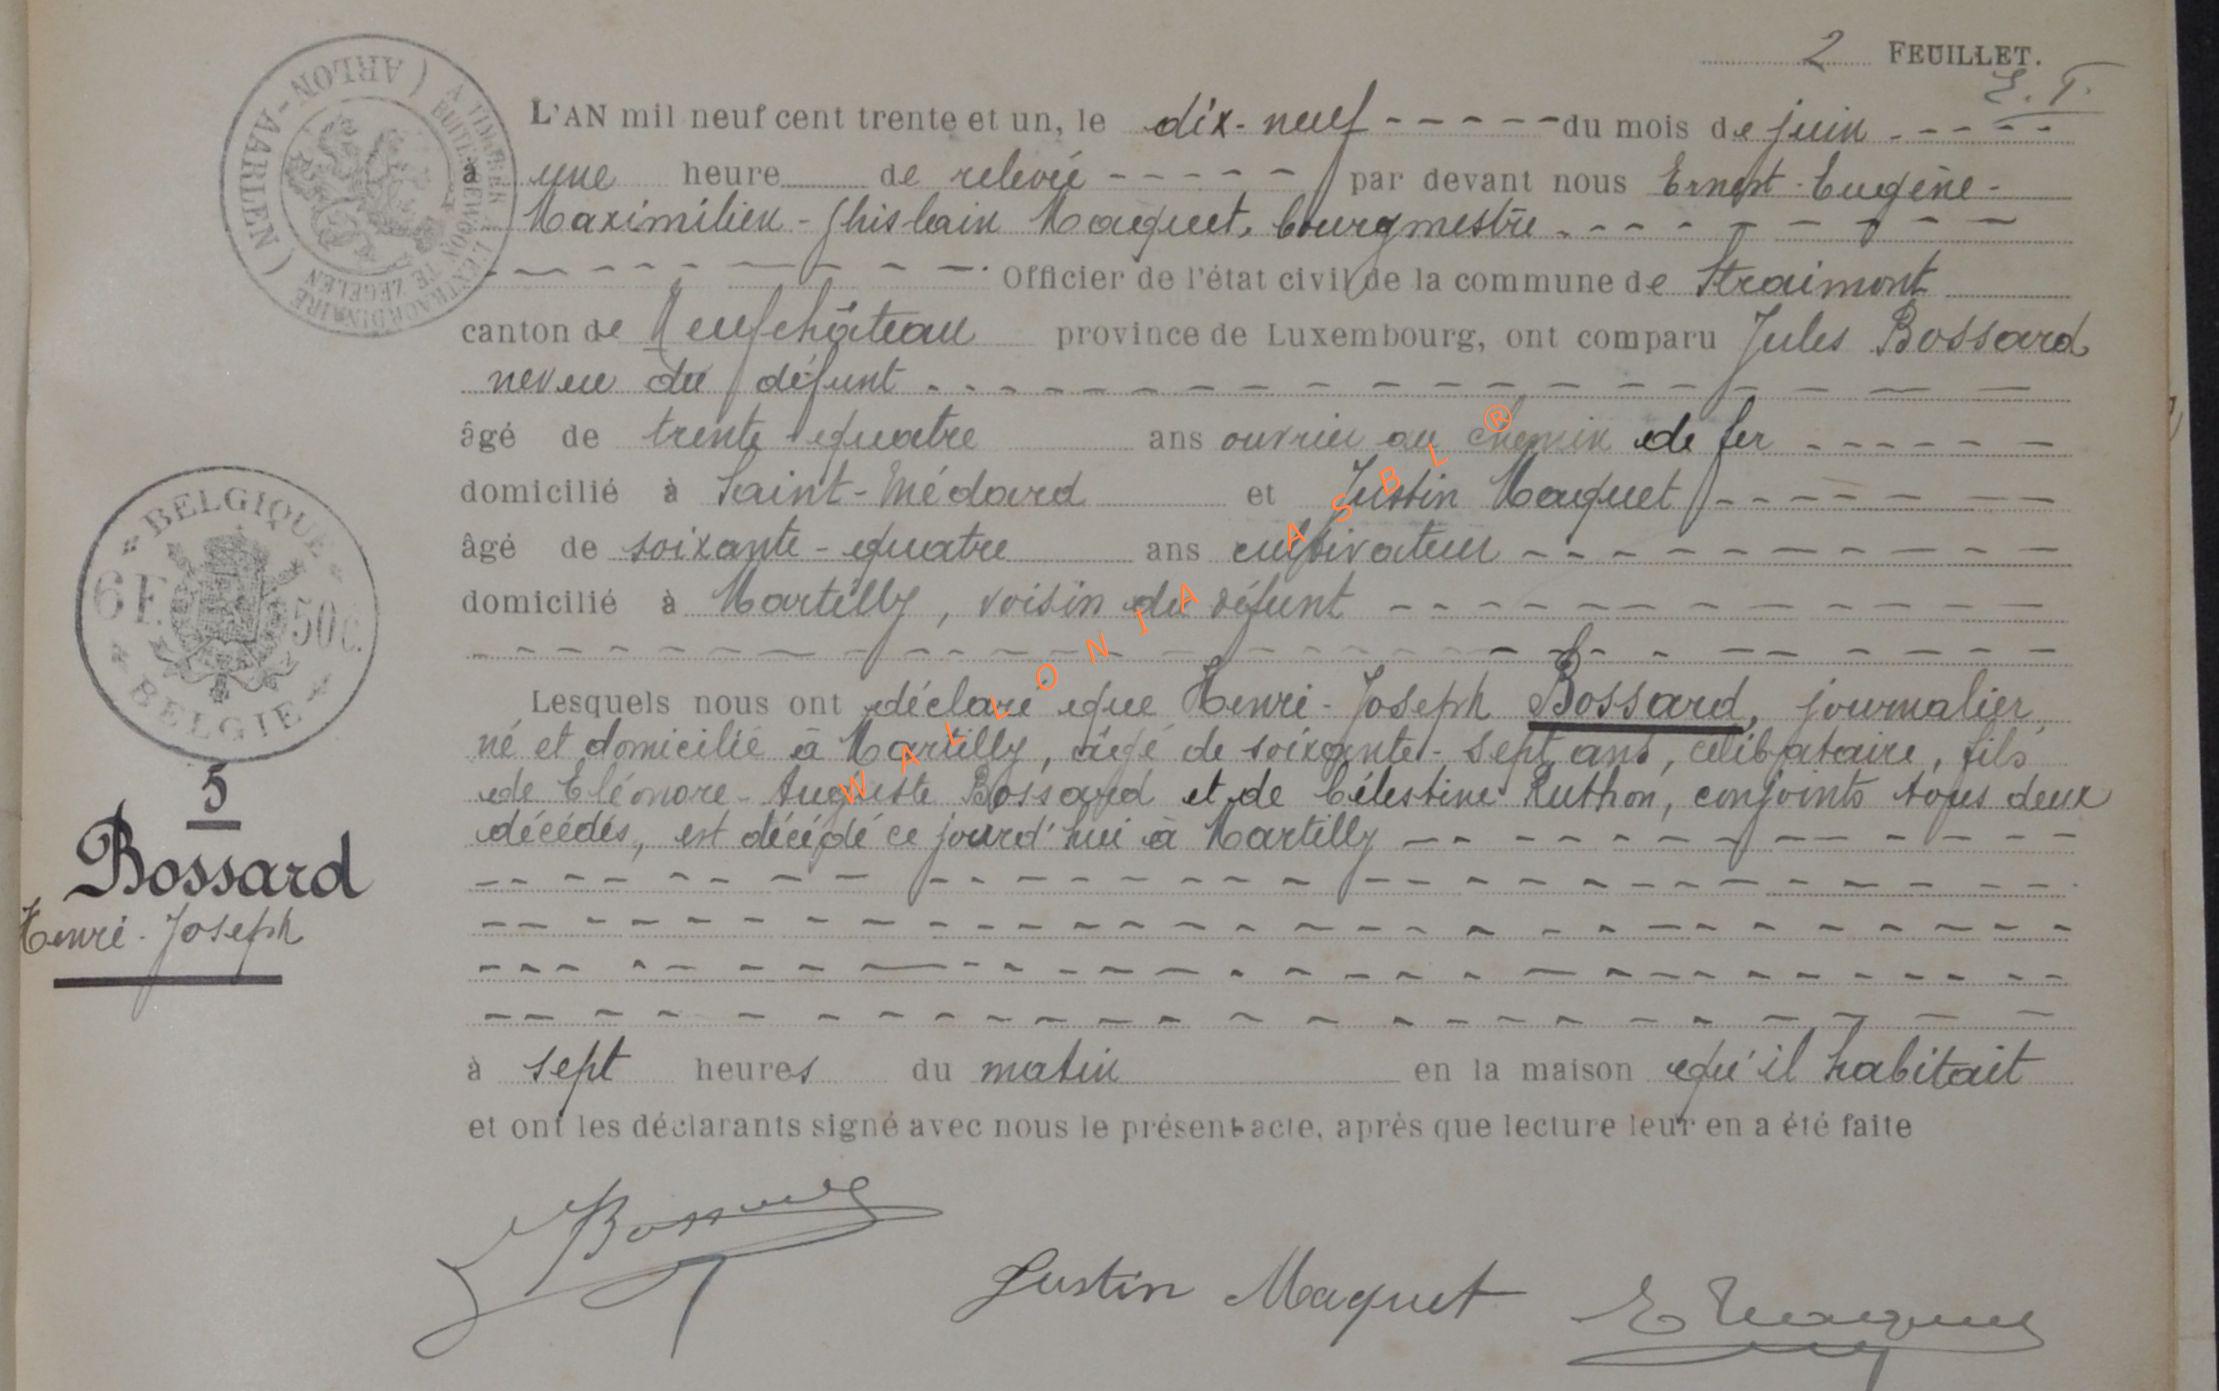 2 FEUILLET.
L'AN mil neuf cent trente et un, le dix-neuf du mois de juin
à une heure de relevée par devant nous Ernest-Eugène-
Maximilien-Ghislain Maquet, bourgmestre
Officier de l'état civil de la commune de Straimont
canton de Neufchâteau province de Luxembourg, ont comparu Jules Bossard
neveu du défunt
âgé de trente-quatre ans ouvrier au chemin de fer
domicilié à Saint-Médard et Justin Maquet
âgé de soixante-quatre ans cultivateur
domicilié à Martilly, voisin du défunt
Lesquels nous ont déclaré que Henri-Joseph Bossard, journalier,
né et domicilié à Martilly, âgé de soixante-sept ans, célibataire, fils
de Eléonore-Auguste Bossard et de Célestine Ruthon, conjoints tous deux
décédés, est décédé ce jourd'hui à Martilly
à sept heures du matin en la maison qu'il habitait
et ont les déclarants signé avec nous le présent acte, après que lecture leur en a été faite
Bossard
Justin Maquet
E Maquet
ARLON - AARLEN
A TIMBRER A L'EXTRAORDINAIRE
BUITENGEWOON TE ZEGELEN
BELGIQUE
6 F. 50 c.
BELGIE
5
Bossard
Henri-Joseph
WALLONIA ASBL ®